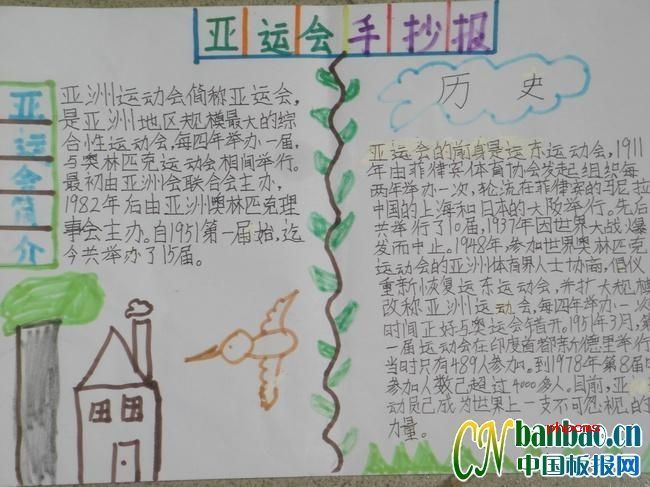 亚运会手抄报
亚运会简介
亚洲运动会简称亚运会,
是亚洲地区规模最大的综
合性运动会,每四年举办一届,
与奥林匹克运动会相间举行。
最初由亚洲会联合会主办,
1982年后由亚洲奥林匹克理
事会主办。自1951第一届始,迄
今共举办了15届。
历史
亚运会的前身是远东运动会,1911
年由菲律宾体育协会发起组织每
两年举办一次,轮流在菲律宾的马尼拉
中国的上海和日本的大阪举行。先后
共举行了10届,1937年因世界大战爆
发而中止。1948年,参加世界奥林匹克
运动会的亚洲体育界人士协商,倡仪
重新恢复远东运动会,并扩大规模
改称亚洲运动会,每四年举办一次
时间正好与奥运会错开.1951年3月,第
一届运动会在印度首都新德里举行
当时只有489人参加。到1978年第8届时
参加人数已超过4000多人。目前,亚
动员已成为世界上一支不可忽视的
力量。
phpcms
CN banbao.cn
中国板报网